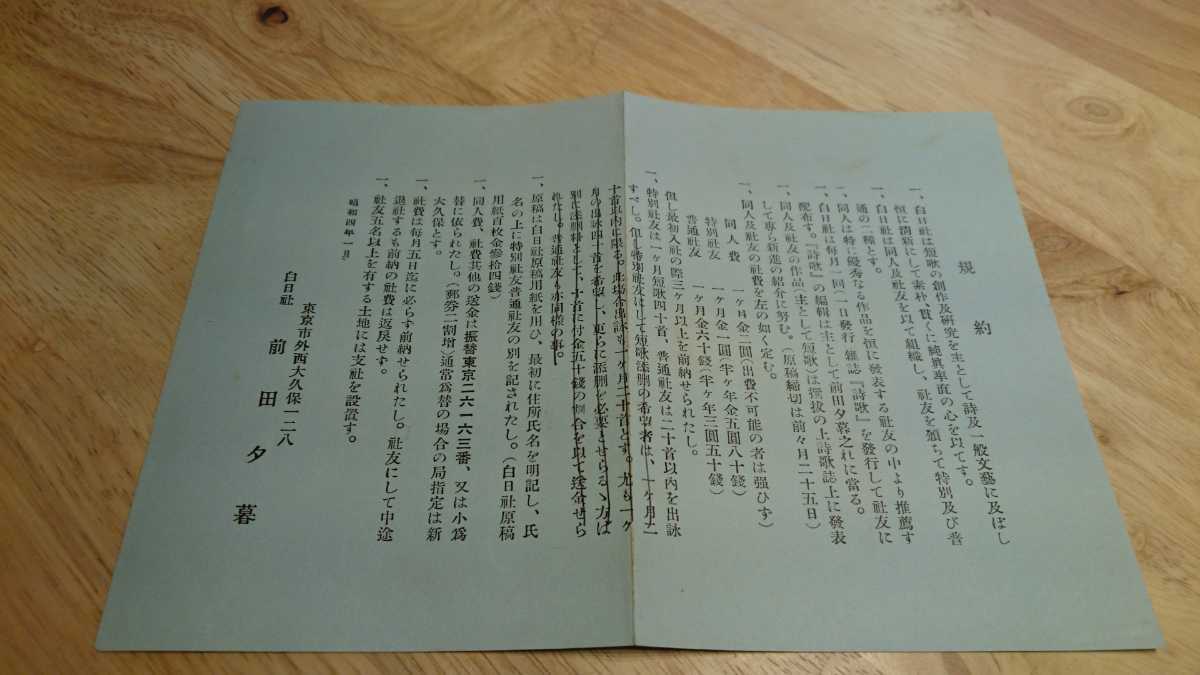 規約
一、白日社は短歌の創作及研究を主として詩及一般文藝に及ぼし
恒に清新にして素朴、貫くに純眞率直の心を以てす。
一、白日社は同人及社友を以て組織し、社友を類ちて特別及び普
通の二種とす。
一、同人は特に優秀なる作品を恒に發表する社友の中より推薦す
一、白日社は毎月一回一日發行 雜誌『詩歌』を發行して社友に
配布す。『詩歌』の編輯は主として前田夕暮之れに當る。
一、同人及社友の作品(主として短歌)は選拔の上詩歌誌上に發表
して專ら新進の紹介に努む。(原稿締切は前々月二十五日)
一、同人及社友の社費を左の如く定む。
同人費 一ケ月金二圓(出費不可能の者は强ひず)
特別社友 一ケ月金一圓(半ケ年金五圓八十錢)
普通社友 一ケ月金六十錢(半ケ年三圓五十錢)
但し最初入社の際三ケ月以上を前納せられたし。
一、特別社友は一ケ月短歌四十首、普通社友は二十首以內を出詠
すべし。但し特別社友にして短歌添削の希望者は、一ケ月二
十首以內に限る。此場合出詠も一ケ月二十首とす。尤も一ケ
月の出詠四十首を希望し、更らに添削を必要とせらるゝ方は
別に添削料として、十首に付金五十錢の割合を以て送金せら
れたし。普通社友も亦同樣の事。
一、原稿は白日社原稿用紙を用ひ、最初に住所氏名を明記し、氏
名の上に特別社友普通社友の別を記されたし。(白日社原稿
用紙百枚金參拾四錢)
一、同人費、社費其他の送金は振替東京二六一六三番、又は小爲
替に依られたし。(郵券二割增)通常爲替の場合の局指定は新
大久保とす。
一、社費は每月五日迄に必らず前納せられたし。社友にして中途
退社するも前納の社費は返戾せず。
一、社友五名以上を有する土地には支社を設置す。
昭和四年一月
東京市外西大久保一二八
白日社 前田夕暮